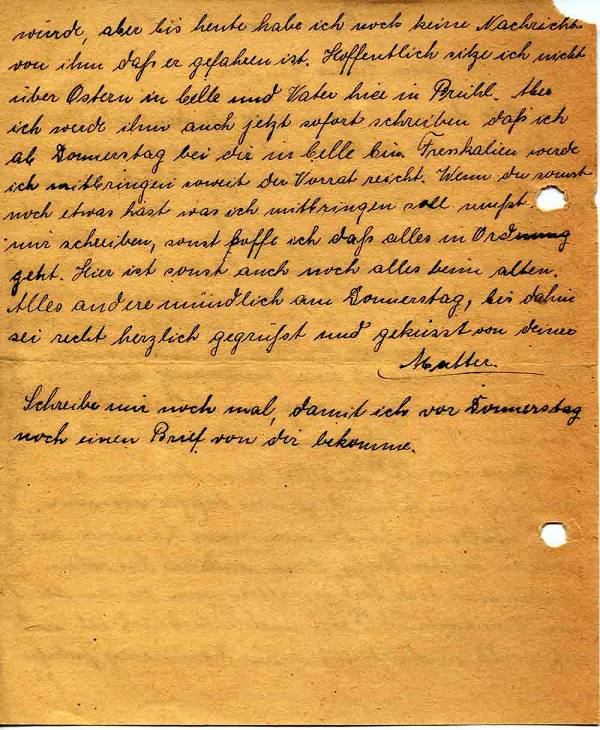 würde, aber bis heute habe ich noch keine Nachricht
von ihm daß er gefahren ist. Hoffentlich sitze ich nicht
über Ostern in Celle und Vater hier in Brühl. Aber
ich werde ihm auch jetzt sofort schreiben daß ich
ab Donnerstag bei dir in Celle bin. Freskalien werde
ich mitbringen soweit der Vorrat reicht. Wenn du sonst
noch etwas hast was ich mitbringen soll mußt
mir schreiben, sonst hoffe ich daß alles in Ordnung
geht. Hier ist sonst auch noch alles beim alten.
Alles andere mündlich am Donnerstag, bis dahin
sei recht herzlich gegrüßt und geküsst von deiner
Mutter.
Schreibe mir noch mal, damit ich vor Donnerstag
noch einen Brief von dir bekomme.